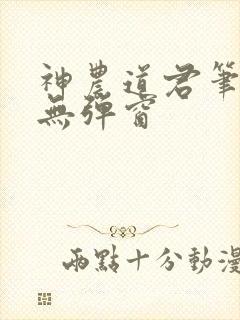 神農道君筆
無彈窗
兩點十分動漫